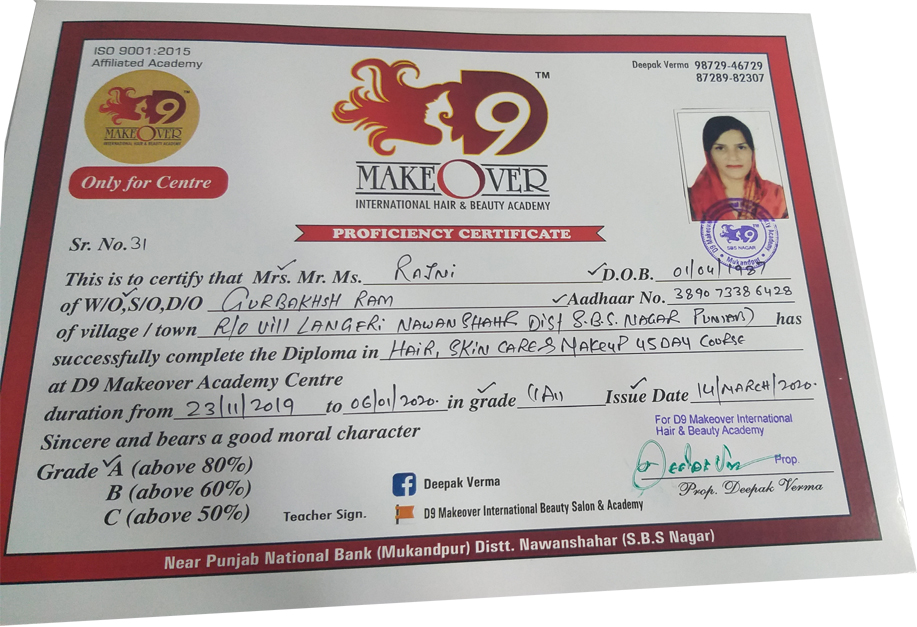 ISO 9001:2015
Affiliated Academy
D9
MAKEOVER
INTERNATIONAL HAIR & BEAUTY ACADEMY
Only for Centre
D9 TM
MAKEOVER
INTERNATIONAL HAIR & BEAUTY ACADEMY
Deepak Verma 98729-46729
87289-82307
PROFICIENCY CERTIFICATE
D9
SBS NAGAR
Mukandpur
Sr. No. 31
This is to certify that Mrs. Mr. Ms. RAJNI D.O.B. 01/04/1987
of W/O,S/O,D/O GURBAKHSH RAM Aadhaar No. 3890 7338 6428
of village / town R/O Vill LANGERi NAWANSHAHR DIST S.B.S. NAGAR PUNJAB) has
successfully complete the Diploma in HAIR, SKIN CARE & MAKEUP 45 DAY COURSE
at D9 Makeover Academy Centre
duration from 23/11/2019 to 06/01/2020. in grade "A" Issue Date 14/MARCH/2020.
Sincere and bears a good moral character
For D9 Makeover International
Hair & Beauty Academy
Grade A (above 80%)
B (above 60%)
C (above 50%)
Prop.
Prop. Deepak Verma
Teacher Sign.
Deepak Verma
D9 Makeover International Beauty Salon & Academy
Near Punjab National Bank (Mukandpur) Distt. Nawanshahar (S.B.S Nagar)